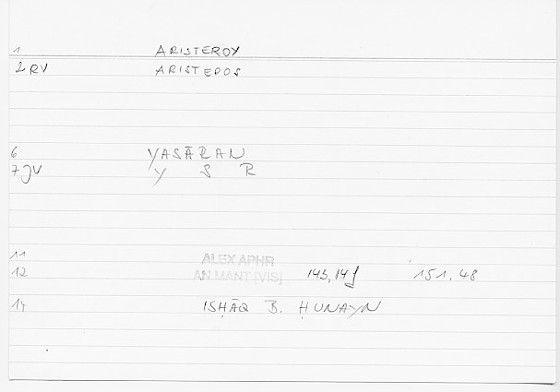 1 ARISTEROY
2 RV ARISTEROS
6 YASĀRAN
7 JV Y S R
11 ALEX APHR
12 AN MANT [VIS] 143,14f 151,48
14 ISḤĀQ B. ḤUNAYN